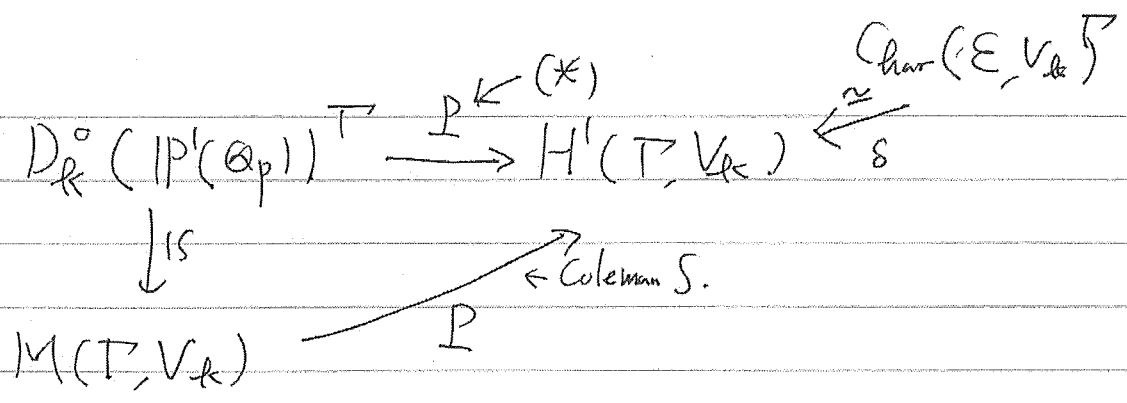 C_har(E, V_k)^Γ
P ← (*)
D_k^0(P^1(Q_p))^Γ → H^1(Γ, V_k) ≃ ← δ
↓ IS
← Coleman ∫.
P
M(Γ, V_k)